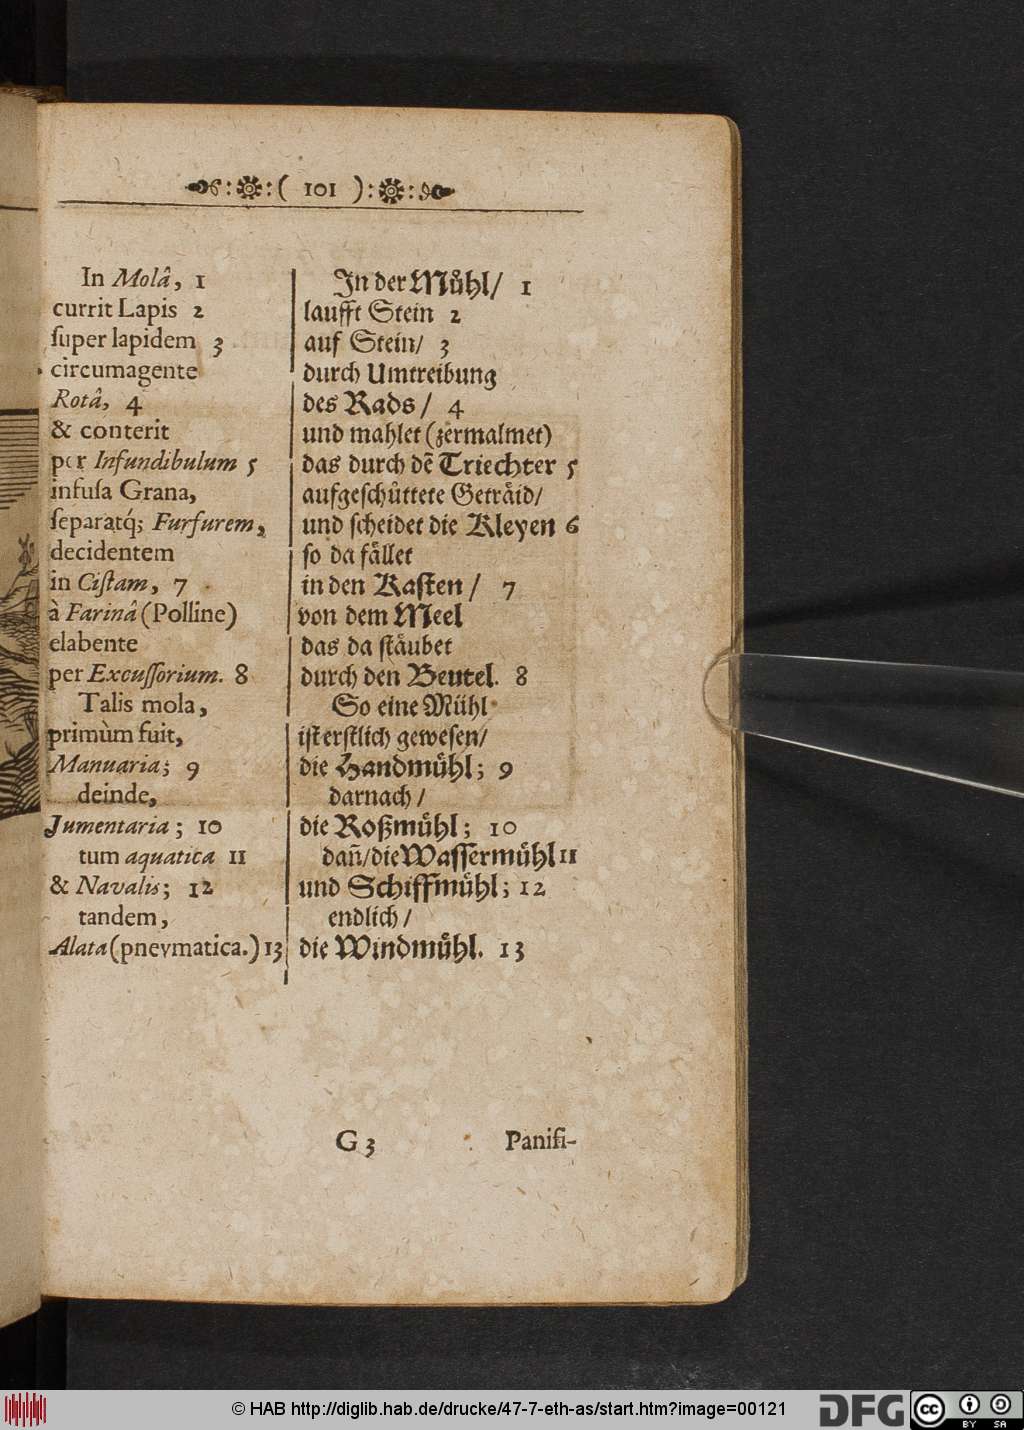 ( 101 )
In Molâ, 1
currit Lapis 2
ſuper lapidem 3
circumagente
Rotâ, 4
& conterit
per Infundibulum 5
infuſa Grana,
ſeparatq́; Furfurem,
decidentem
in Ciſtam, 7
à Farinâ (Polline)
elabente
per Excuſſorium. 8
Talis mola,
primùm fuit,
Manuaria; 9
deinde,
Jumentaria; 10
tum aquatica 11
& Navalis; 12
tandem,
Alata (pnevmatica.) 13
In der Muͤhl/ 1
laufft Stein 2
auf Stein/ 3
durch Umtreibung
des Rads / 4
und mahlet (zermalmet)
das durch dẽ Triechter 5
aufgeſchuͤttete Getraͤid/
und ſcheidet die Kleyen 6
ſo da faͤllet
in den Kaſten / 7
von dem Meel
das da ſtaͤubet
durch den Beutel. 8
So eine Muͤhl
iſt erſtlich geweſen/
die Handmuͤhl; 9
darnach /
die Roßmuͤhl; 10
dañ/die Waſſermuͤhl 11
und Schiffmuͤhl; 12
endlich /
die Windmuͤhl. 13
G 3 Panifi-
© HAB http://diglib.hab.de/drucke/47-7-eth-as/start.htm?image=00121
DFG
cc BY SA